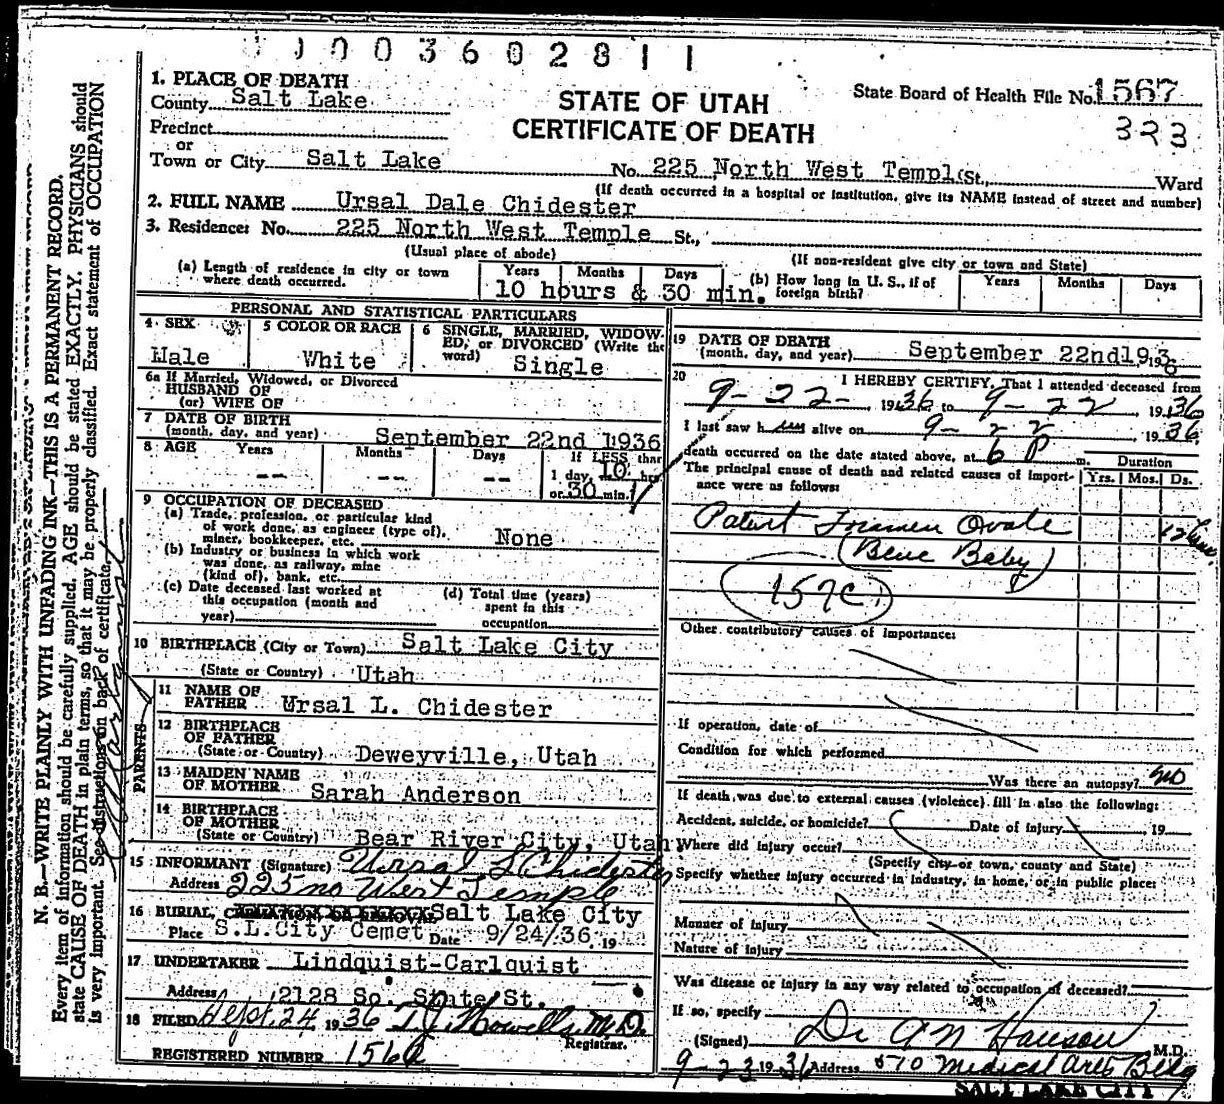 0 0 3 6 0 2 8 1 1
1. PLACE OF DEATH
County Salt Lake
Precinct
or
Town or City Salt Lake
STATE OF UTAH
CERTIFICATE OF DEATH
State Board of Health File No. 1567
323
No. 225 North West Templ(St., Ward
(If death occurred in a hospital or institution, give its NAME instead of street and number)
2. FULL NAME Ursal Dale Chidester
3. Residence: No. 225 North West Temple St.,
(Usual place of abode)
(If non-resident give city or town and State)
(a) Length of residence in city or town where death occurred.
Years Months Days
10 hours & 30 min.
(b) How long in U. S., if of foreign birth?
Years Months Days
PERSONAL AND STATISTICAL PARTICULARS
4 SEX
Male
5 COLOR OR RACE
White
6 SINGLE, MARRIED, WIDOW-
ED, or DIVORCED (Write the
word) Single
6a If Married, Widowed, or Divorced
HUSBAND OF
(or) WIFE OF
7 DATE OF BIRTH
(month, day, and year) September 22nd 1936
8 AGE Years Months Days
-- -- --
If LESS than
1 day, 10 hrs.
or 30 min.
9 OCCUPATION OF DECEASED
(a) Trade, profession, or particular kind
of work done, as engineer (type of),
miner, bookkeeper, etc. None
(b) Industry or business in which work
was done, as railway, mine
(kind of), bank, etc.
(c) Date deceased last worked at
this occupation (month and
year)
(d) Total time (years)
spent in this
occupation
10 BIRTHPLACE (City or Town) Salt Lake City
(State or Country) Utah
PARENTS
11 NAME OF
FATHER Ursal L. Chidester
12 BIRTHPLACE
OF FATHER
(State or Country) Deweyville, Utah
13 MAIDEN NAME
OF MOTHER Sarah Anderson
14 BIRTHPLACE
OF MOTHER
(State or Country) Bear River City, Utah
15 INFORMANT (Signature) Ursal L Chidester
Address 225 no West Temple
16 BURIAL, CREMATION OR REMOVAL Salt Lake City
Place S.L.City Cemet Date 9/24/36, 19
17 UNDERTAKER Lindquist-Carlquist
Address 2128 So. State St.
18 FILED Sept. 24 1936 T.J. Howells, M.D.
Registrar.
REGISTERED NUMBER 1560
19 DATE OF DEATH
(month, day, and year) September 22nd 1936
20
I HEREBY CERTIFY, That I attended deceased from
9-22-, 1936 to 9-22, 1936
I last saw him alive on 9-22, 1936
death occurred on the date stated above, at 6 P m.
The principal cause of death and related causes of import-
ance were as follows:
Duration
Yrs. Mos. Ds.
Patent Foramen Ovale
(Blue Baby)
157c
Other contributory causes of importance:
If operation, date of
Condition for which performed
Was there an autopsy? no
If death was due to external causes (violence) fill in also the following:
Accident, suicide, or homicide? Date of injury 19
Where did injury occur?
(Specify city or town, county and State)
Specify whether injury occurred in industry, in home, or in public place:
Manner of injury
Nature of injury
Was disease or injury in any way related to occupation of deceased?
If so, specify
(Signed) Dr A N Hanson M.D.
9-23 1936 Address 510 Medical Arts Bldg
SALT LAKE CITY
N. B.—WRITE PLAINLY WITH UNFADING INK—THIS IS A PERMANENT RECORD.
Every item of information should be carefully supplied. AGE should be stated EXACTLY. PHYSICIANS should
state CAUSE OF DEATH in plain terms, so that it may be properly classified. Exact statement of OCCUPATION
is very important. See instructions on back of certificate.